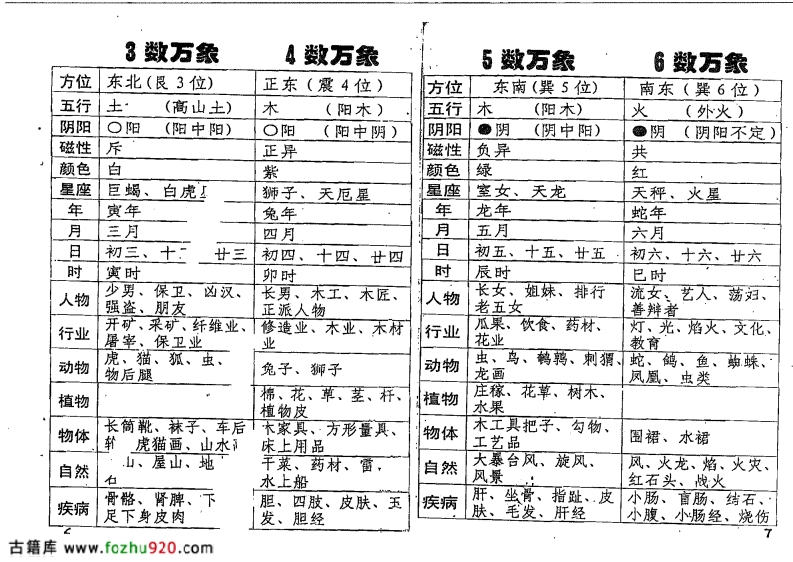 3数万象 4数万象
方位 东北(艮3位) 正东(震4位)
五行 土 (高山土) 木 (阳木)
阴阳 ○阳 (阳中阳) ○阳 (阳中阴)
磁性 斥 正异
颜色 白 紫
星座 巨蝎、白虎 狮子、天厄星
年 寅年 兔年
月 三月 四月
日 初三、十 廿三 初四、十四、廿四
时 寅时 卯时
人物 少男、保卫、凶汉、 长男、木工、木匠、
强盗、朋友 正派人物
行业 开矿、采矿、纤维业、 修造业、木业、木材
屠宰、保卫业 业
动物 虎、猫、狐、虫、 兔子、狮子
物后腿
植物 棉、花、草、茎、杆、
植物皮
物体 长筒靴、袜子、车后 家具、方形量具、
虎猫画、山水 床上用品
自然 山、屋山、地 干菜、药材、雷,
石 水上船
疾病 骨骼、肾脾、下 胆、四肢、皮肤、玉
足下身皮肉 发、胆经
5数万象 6数万象
方位 东南(巽5位) 南东(巽6位)
五行 木 (阳木) 火 (外火)
阴阳 ●阴 (阴中阳) ●阴 (阴阳不定)
磁性 负异 共
颜色 绿 红
星座 室女、天龙 天秤、火星
年 龙年 蛇年
月 五月 六月
日 初五、十五、廿五 初六、十六、廿六
时 辰时 巳时
人物 长女、姐妹、排行 流女、艺人、荡妇、
老五女 善辩者
行业 瓜果、饮食、药材、 灯、光、焰火、文化、
花业 教育
动物 虫、鸟、鹌鹑、刺猬、 蛇、鸽、鱼、蜘蛛、
龙画 凤凰、虫类
植物 庄稼、花草、树木、
水果
物体 木工具把子、勾物、 围裙、水裙
工艺品
自然 大暴台风、旋风、 风、火龙、焰、火灾、
风景 红石头、战火
疾病 肝、坐骨、指趾、皮 小肠、盲肠、结石、
肤、毛发、肝经 小腹、小肠经、烧伤
7
古籍库 www.fozhu920.com